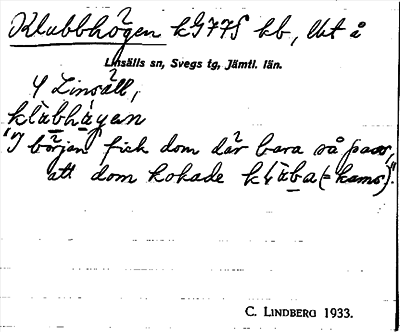 Klubbhögen kG775 kb, Ut å
Linsälls sn, Svegs tg, Jämtl. län.
Y Linsäll,
klúbhǻgen
"I början fick dom där bara så pass,
att dom kokade klúba (= kams)".
C. LINDBERG 1933.